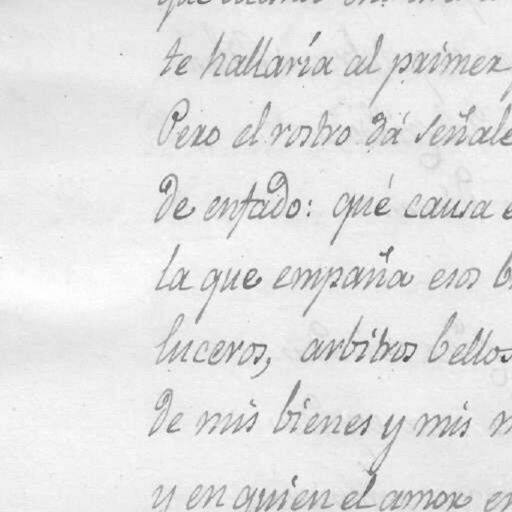 te hallaría al primer
Pero el rostro dá señale
de enfado: qué causa e
la que empaña esos b
luceros, arbitros bellos
de mis bienes y mis m
y en quien el amor en